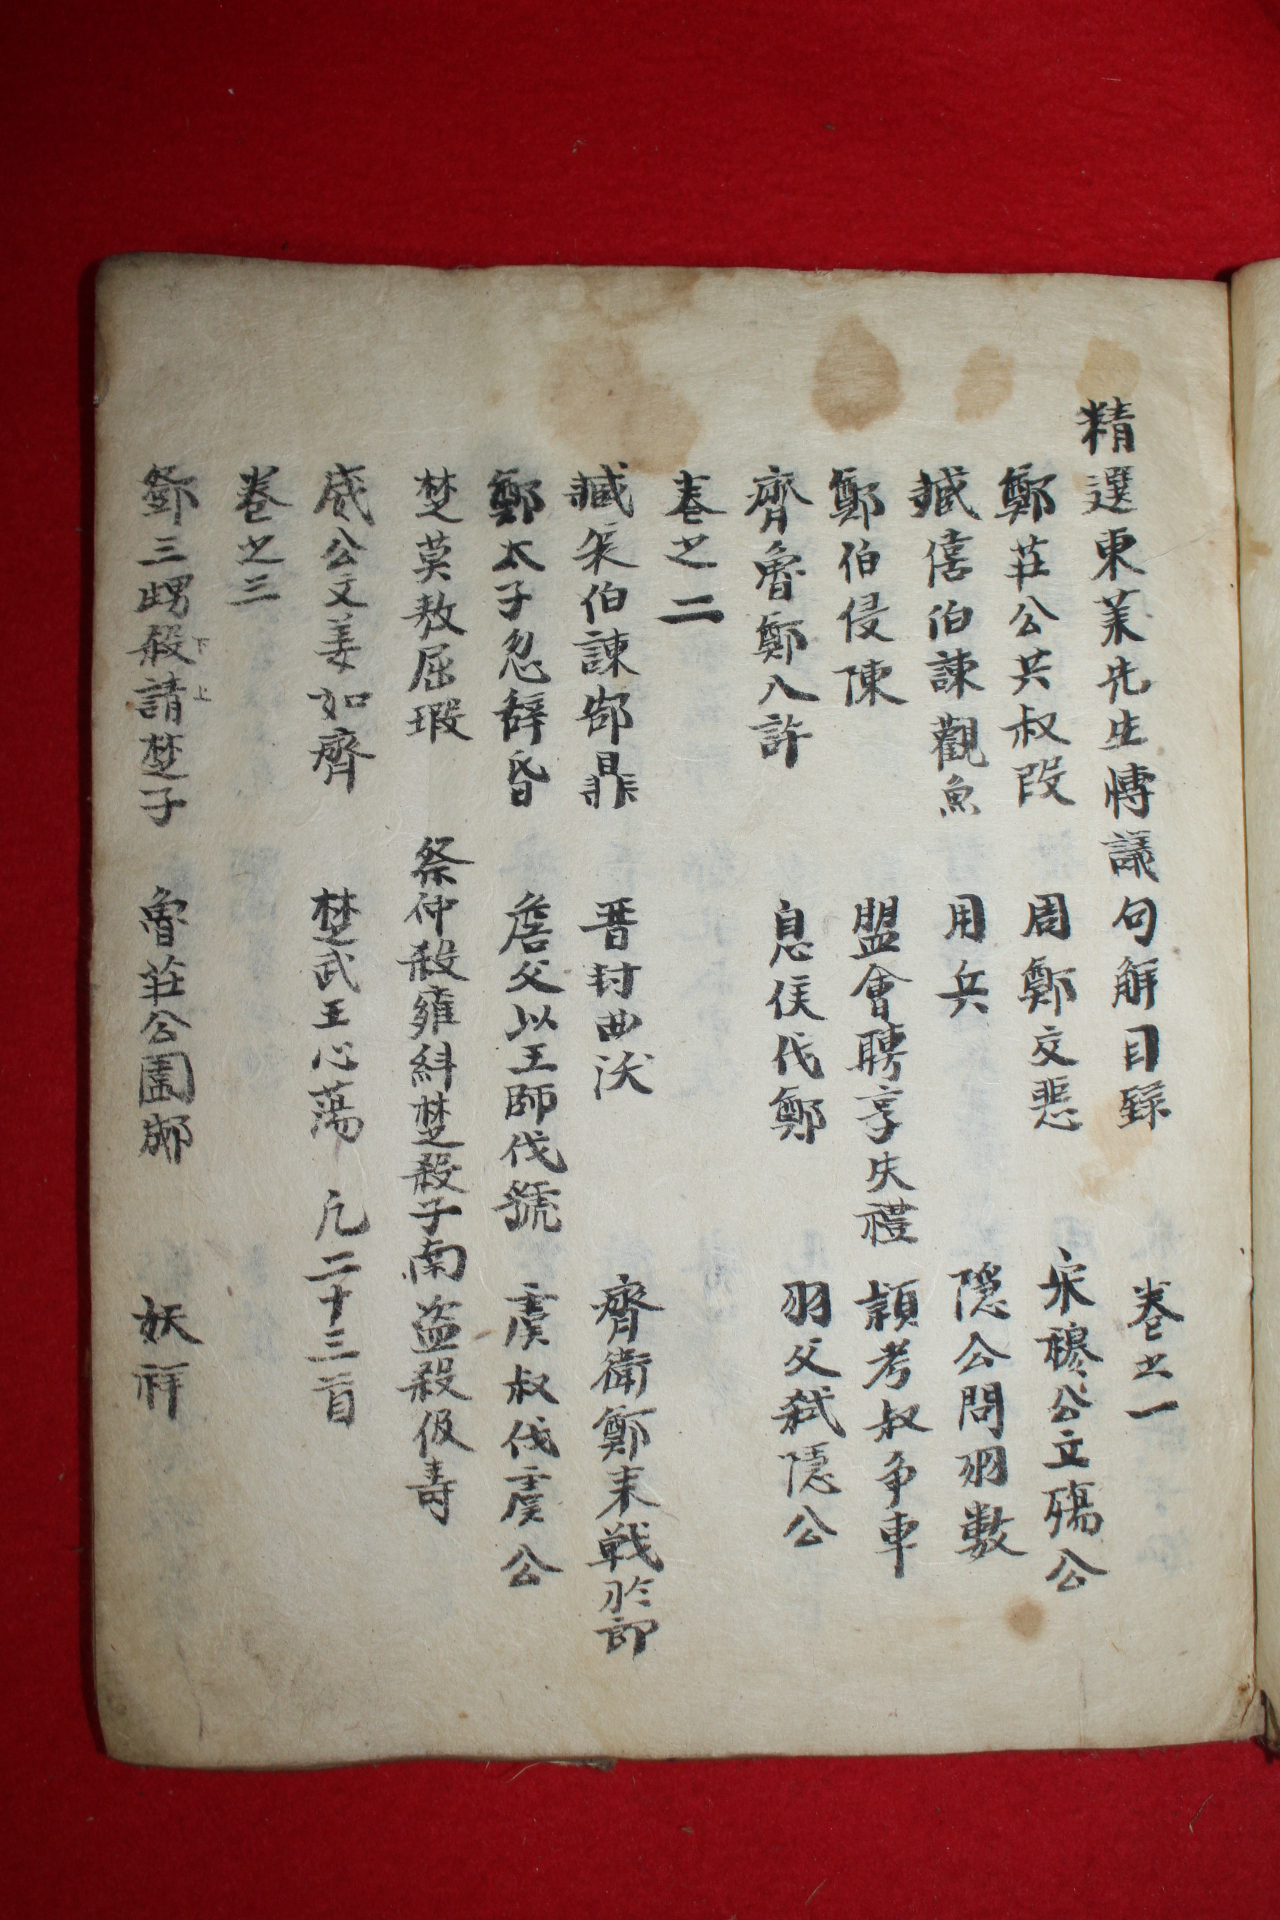 精選東萊先生博議句解目錄 卷之一
鄭莊公共叔段 周鄭交惡 宋穆公立殤公
臧僖伯諫觀魚 用兵 隱公問羽數
鄭伯侵陳 盟會聘享失禮 穎考叔爭車
齊魯鄭入許 息侯伐鄭 羽父弒隱公
卷之二
臧哀伯諫郜鼎 晋封曲沃 齊衛鄭來戰於郎
鄭太子忽辭昏 詹父以王師伐虢 虞叔伐虞公
楚莫敖屈瑕 祭仲殺雍糾楚殺子南盜殺伋壽
威公文姜如齊 楚武王心蕩 凡二十三首
卷之三
鄧三甥殺請楚子 魯莊公圍郕 妖祥
下上